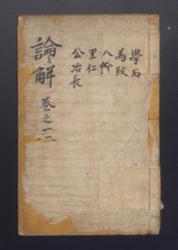 學而
為政
八佾
里仁
公冶長
論解 卷之